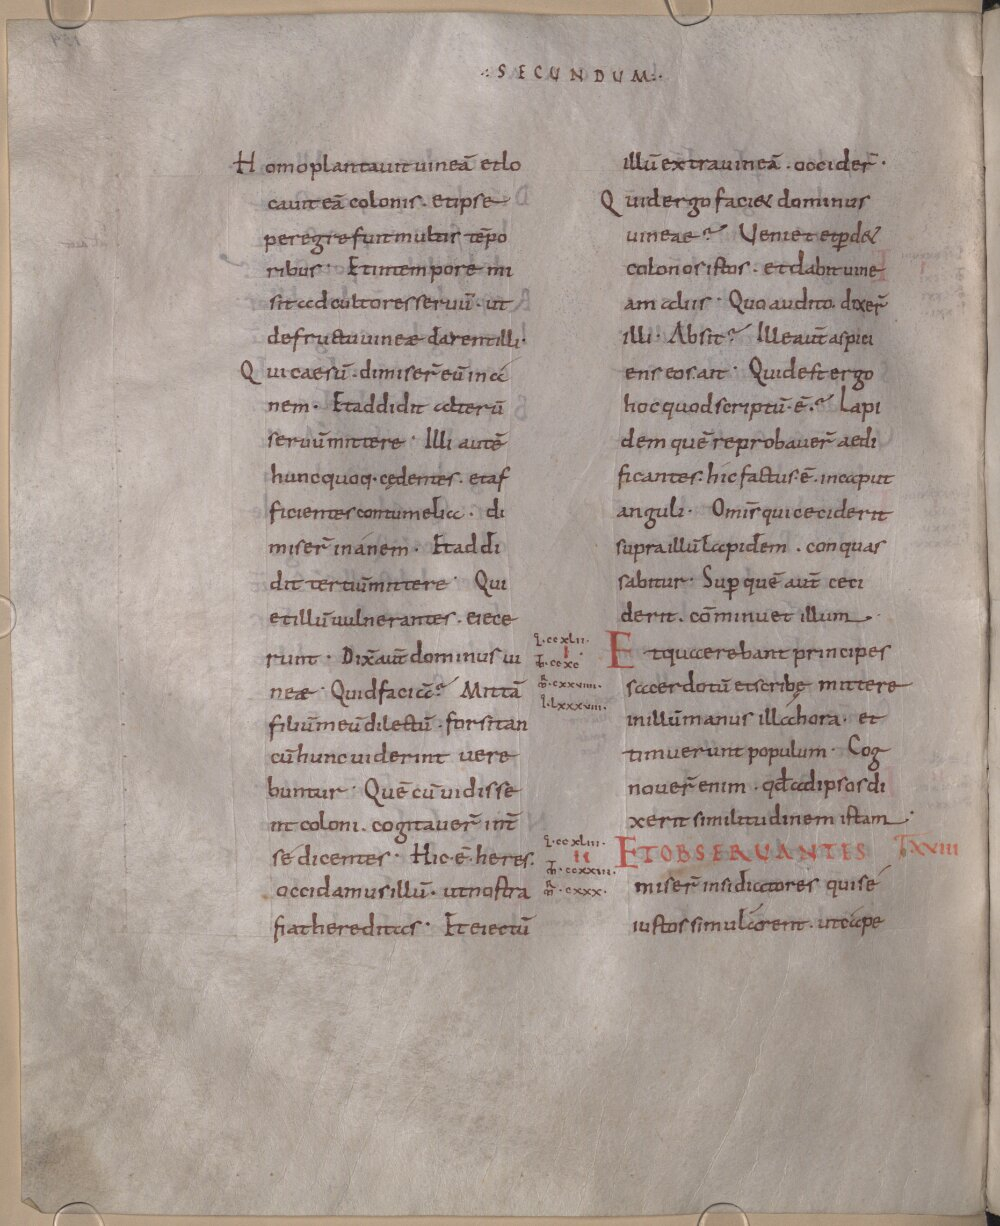 ∴SECUNDUM:·
Homo plantauit uineā etlo
cauit eā colonis· et ipse
peregre fuit multis tēpo
ribus· Et in tempore mi
sit ad cultores seruū· ut
de fructu uineae darent illi·
Qui caesū· dimiserr̄ eū ina
nem· Et addidit alterū
seruū mittere· Illi autē
hunc quoq· cędentes· et af
ficientes contumelia· di
miser̄ inánem· Et addi
dit tertiū mittere· Qui
et illū uulnerantes· eiece
runt· Dix̄ aut̄ dominus ui
neæ· Quid faciā? Mittā
filiū meū dilectū· forsitan
cū hunc uiderint uere
buntur· Quē cū uidisse
nt coloni· cogitauer̄ int̄
sé dicentes· Hic· ē· heres·
occidamus illū· ut nostra
fiat hereditas· Et eiectū
illū extra uineā· occider̄·
Quid ergo faci& dominus
uineae? Ueniet et ꝑd&
colonos istos· et dabit uine
am aliis· Quo audito· dixer̄
illi· Absit? Ille aut̄ aspici
ens eos· ait· Quid est ergo
hoc quod scriptū· ē·? Lapi
dem quē reprobauer̄ aedi
ficantes· hic factus· ē· in caput
anguli· Omīs qui ceciderit
supra illū lapidem· conquas
sabitur· Suꝑ quē aut̄ ceci
derit· cōminuet illum·
Et quaerebant principes
sacerdotū et scribę mittere
in illū manus illa hora· et
timuerunt populum· Cog
nouer̄ enim· qđ ad ipsos di
xerit similitudinem istam·
ET OBSERUANTES T̄XXIII
miser̄ insidiatores qui sé
iustos simularent· ut cape
·ccxlii·
I
·ccxc
·cxxviiii·
l·lxxxviii·
·ccxliii·
II
·ccxxiii·
·cxxx·